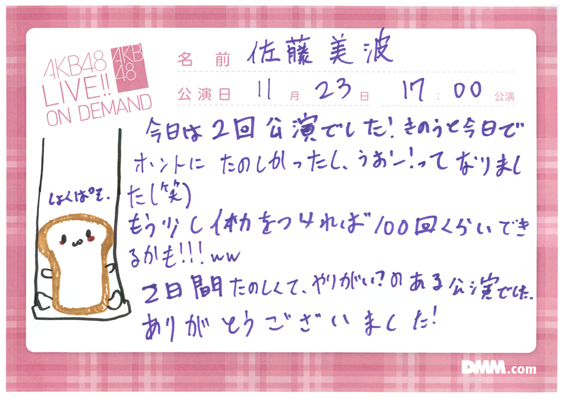 AKB48
LIVE!!
ON DEMAND
AKB
48
名前 佐藤美波
公演日 11月23日 17:00公演
今日は2回公演でした!きのうと今日で
ホントにたのしかったし、うおー!ってなりまし
た(笑)
もう少し体力をつければ100回くらいでき
るかも!!!ww
2日間たのしくて、やりがい?のある公演でした。
ありがとうございました!
しょくぱそ。
DMM.com